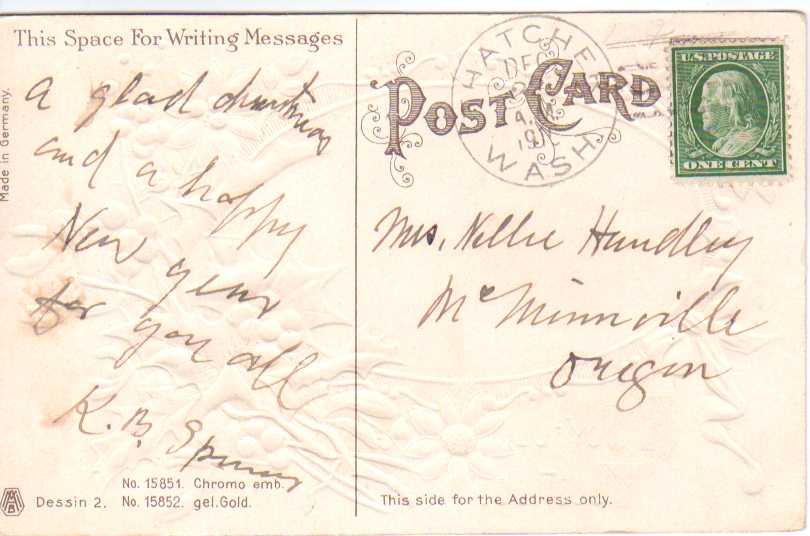 This Space For Writing Messages
Made in Germany.
A glad christmas
and a happy
New year
for you all
K. B.
No. 15851. Chromo emb.
Dessin 2. No. 15852. gel.Gold.
MAB
POST CARD
HATCHE
DE
A.M
19
WASH
U.S. POSTAGE
ONE CENT
Mrs. Nellie Hundley
McMinnville
Oregon
This side for the Address only.